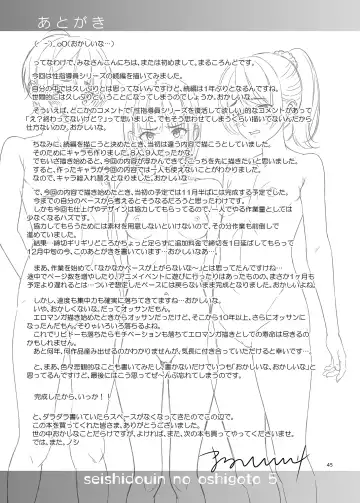 あとがき
( ´-`).oO(おかしいな…)
ってなわけで、みなさんこんにちは、または初めまして、まるころんどです。
今回は性指導員シリーズの続編を描いてみました。
自分の中では久しぶりとは思ってないんですけど、続編は1年ぶりとなるんですね。
世間的には久しぶりということになってしまうのでしょうか。おかしいな……
そういえば、どこかのコメントで「性指導員シリーズを復活して欲しい」的なコメントがあって
「え？終わってないけど？」って思いました。でもそう思わせてしまうくらい描いてないんだから
仕方ないのか。おかしいな。
ちなみに、続編を描こうと決めたとき、当初は違う内容で描こうとしていました。
そのためにキャラも作りました。8人、9人だったかな。
でもいざ描き始めると、今回の内容が浮かんできて、こっちを先に描きたいと思いました。
すると、作ったキャラが今回の内容では一人も使えないことがわかりました。
なので、キャラ総入れ替えとなりました。おかしいな……
で、今回の内容で描き始めたとき、当初の予定では11月半ばには完成する予定でした。
今までの自分のペースから考えるとそうなるだろうと思ったわけです。
しかも今回も仕上げやデザインは協力してもらってるので、一人でやる作業量としては
少なくなるハズです。
協力してもらうためには素材を用意しないといけないので、その分作業も前倒しで
進めていました。
結果…締切ギリギリどころかちょっと足らずに追加料金で締切を1日延ばしてもらって
12月中旬の今、このあとがきを書いています…おかしいなぁ…
まぁ、作業を始めて、「なかなかペースが上がらないな～」とは思ってたんですけね…
途中でページ数を増やしたり、アニメイベントに遊びに行ったりはあったものの、まさか1ヶ月も
予定より遅れるとは…つい想定したペースには戻らないまま完成となりました。おかしいよね。
しかし、速度も集中力も確実に落ちてきてますと…おかしいな。
いや、おかしくないな。だってオッサンだもん。
エロマンガ描き始めたときからオッサンだったけど、そこから10年以上、さらにオッサンに
なったんだもん。そりゃいろいろ落ちるよね。
これでリビドーも落ちたらモチベーションも落ちてエロマンガ描きとしての寿命は尽きるの
かもしれません。
あと何年、何作品産み出せるのかわかりませんが、気長に付き合っていただけると幸いです…
と、まあ、色々悲観的なことも書いてみたし、書かないだけでいつも「おかしいな、おかしいな」と
思ってるんですけど、最後にはこう思ってぜ～んぶ忘れてしまうのです。
完成したから、いっか！！
と、ダラダラ書いていたらスペースがなくなってきたのでこの辺で。
この本を買ってくれた皆さま、ありがとうございました。
世の中おかしなことだらけですが、よければ、また、次の本も買ってやってくださいませ。
では、また。ノシ
45
seishidouin no oshigoto 5